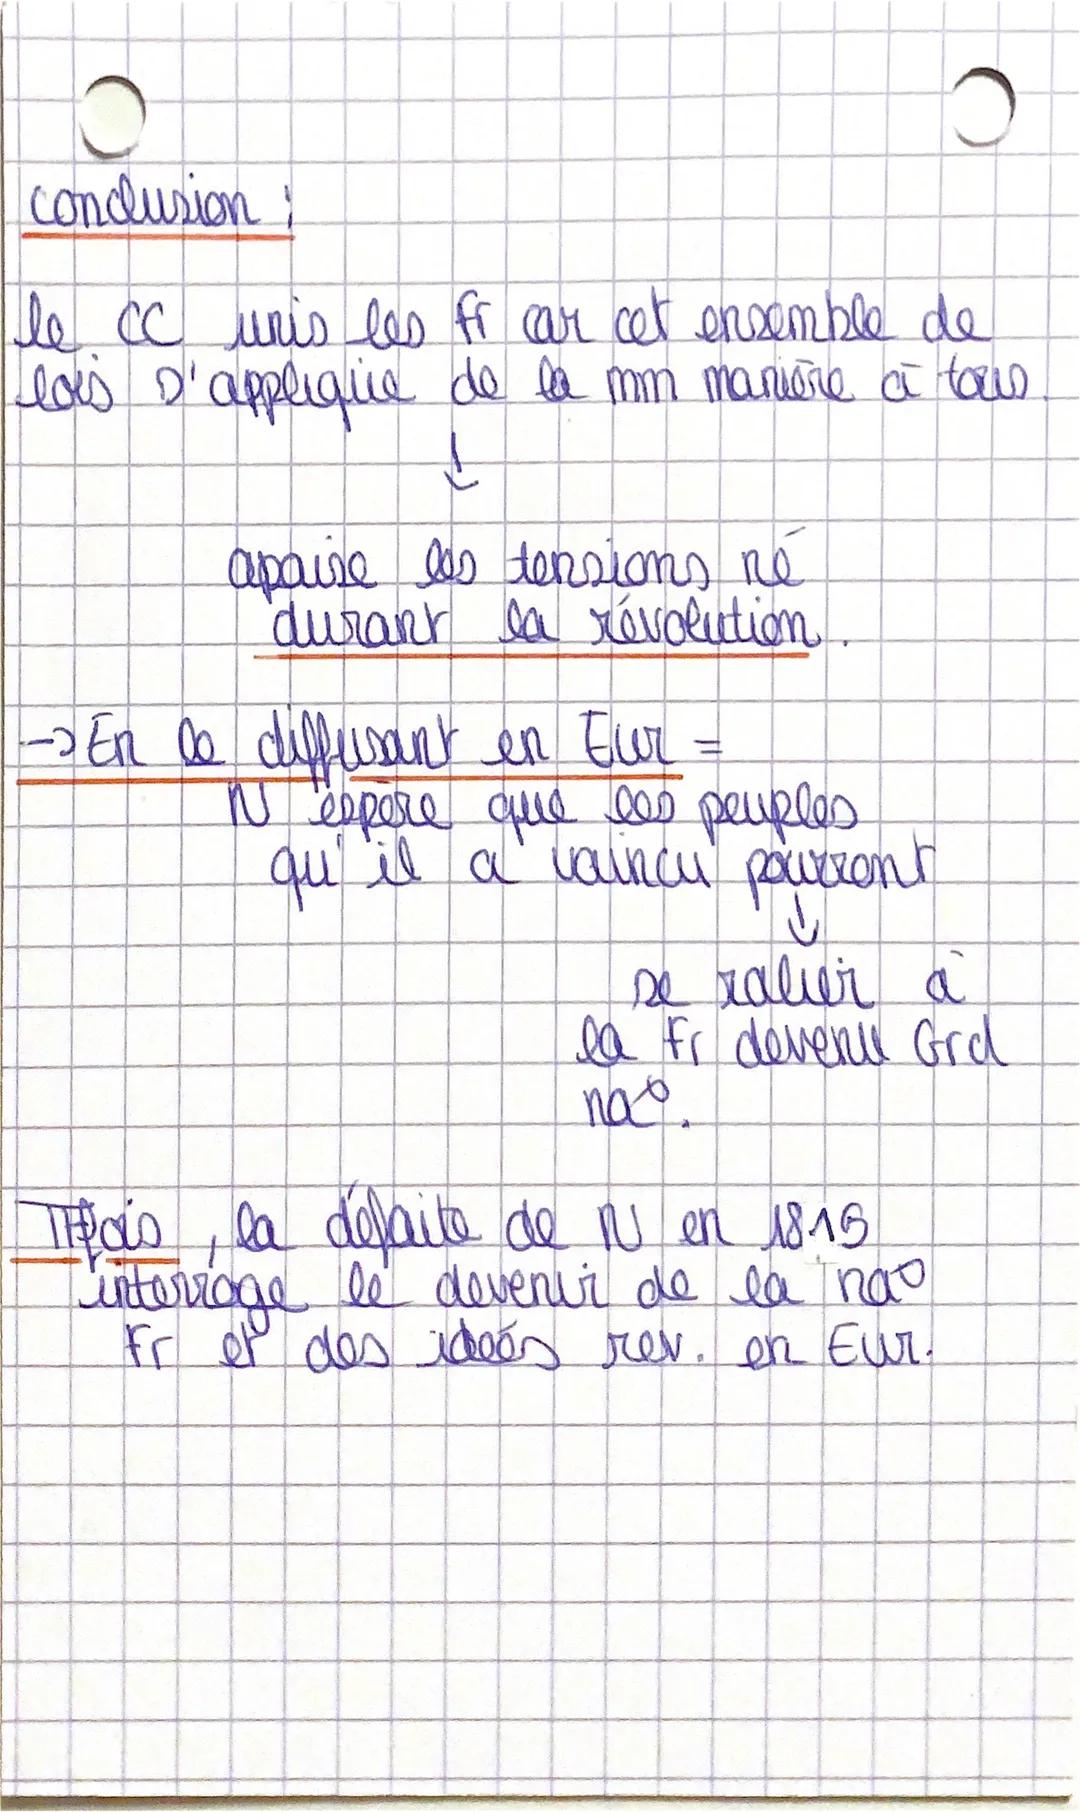 conclusion :
le CC unis les fr car cet ensemble de
lois s'applique de la mm manière à tous.
↓
apaise les tensions né
durant la révolution.
→ En le diffusant en Eur =
N espère que les peuples
qu'il a vaincu pourront
↓
se ralier à
la Fr devenu Grd
na°.
Tfois, la défaite de N en 1815
interroge le devenir de la na°
Fr et des ideés rev. en Eur.